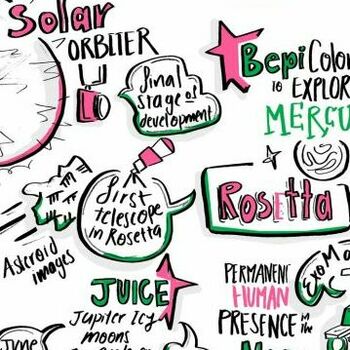 Solar
ORBITER
final
stage of
development
BepiColo
to
EXPLOR
MERCU
first
telescope
in Rosetta
Rosetta
Asteroid
images
JUICE
Jupiter Icy
moons
PERMANENT
HUMAN
PRESENCE in the
ExoMa
June